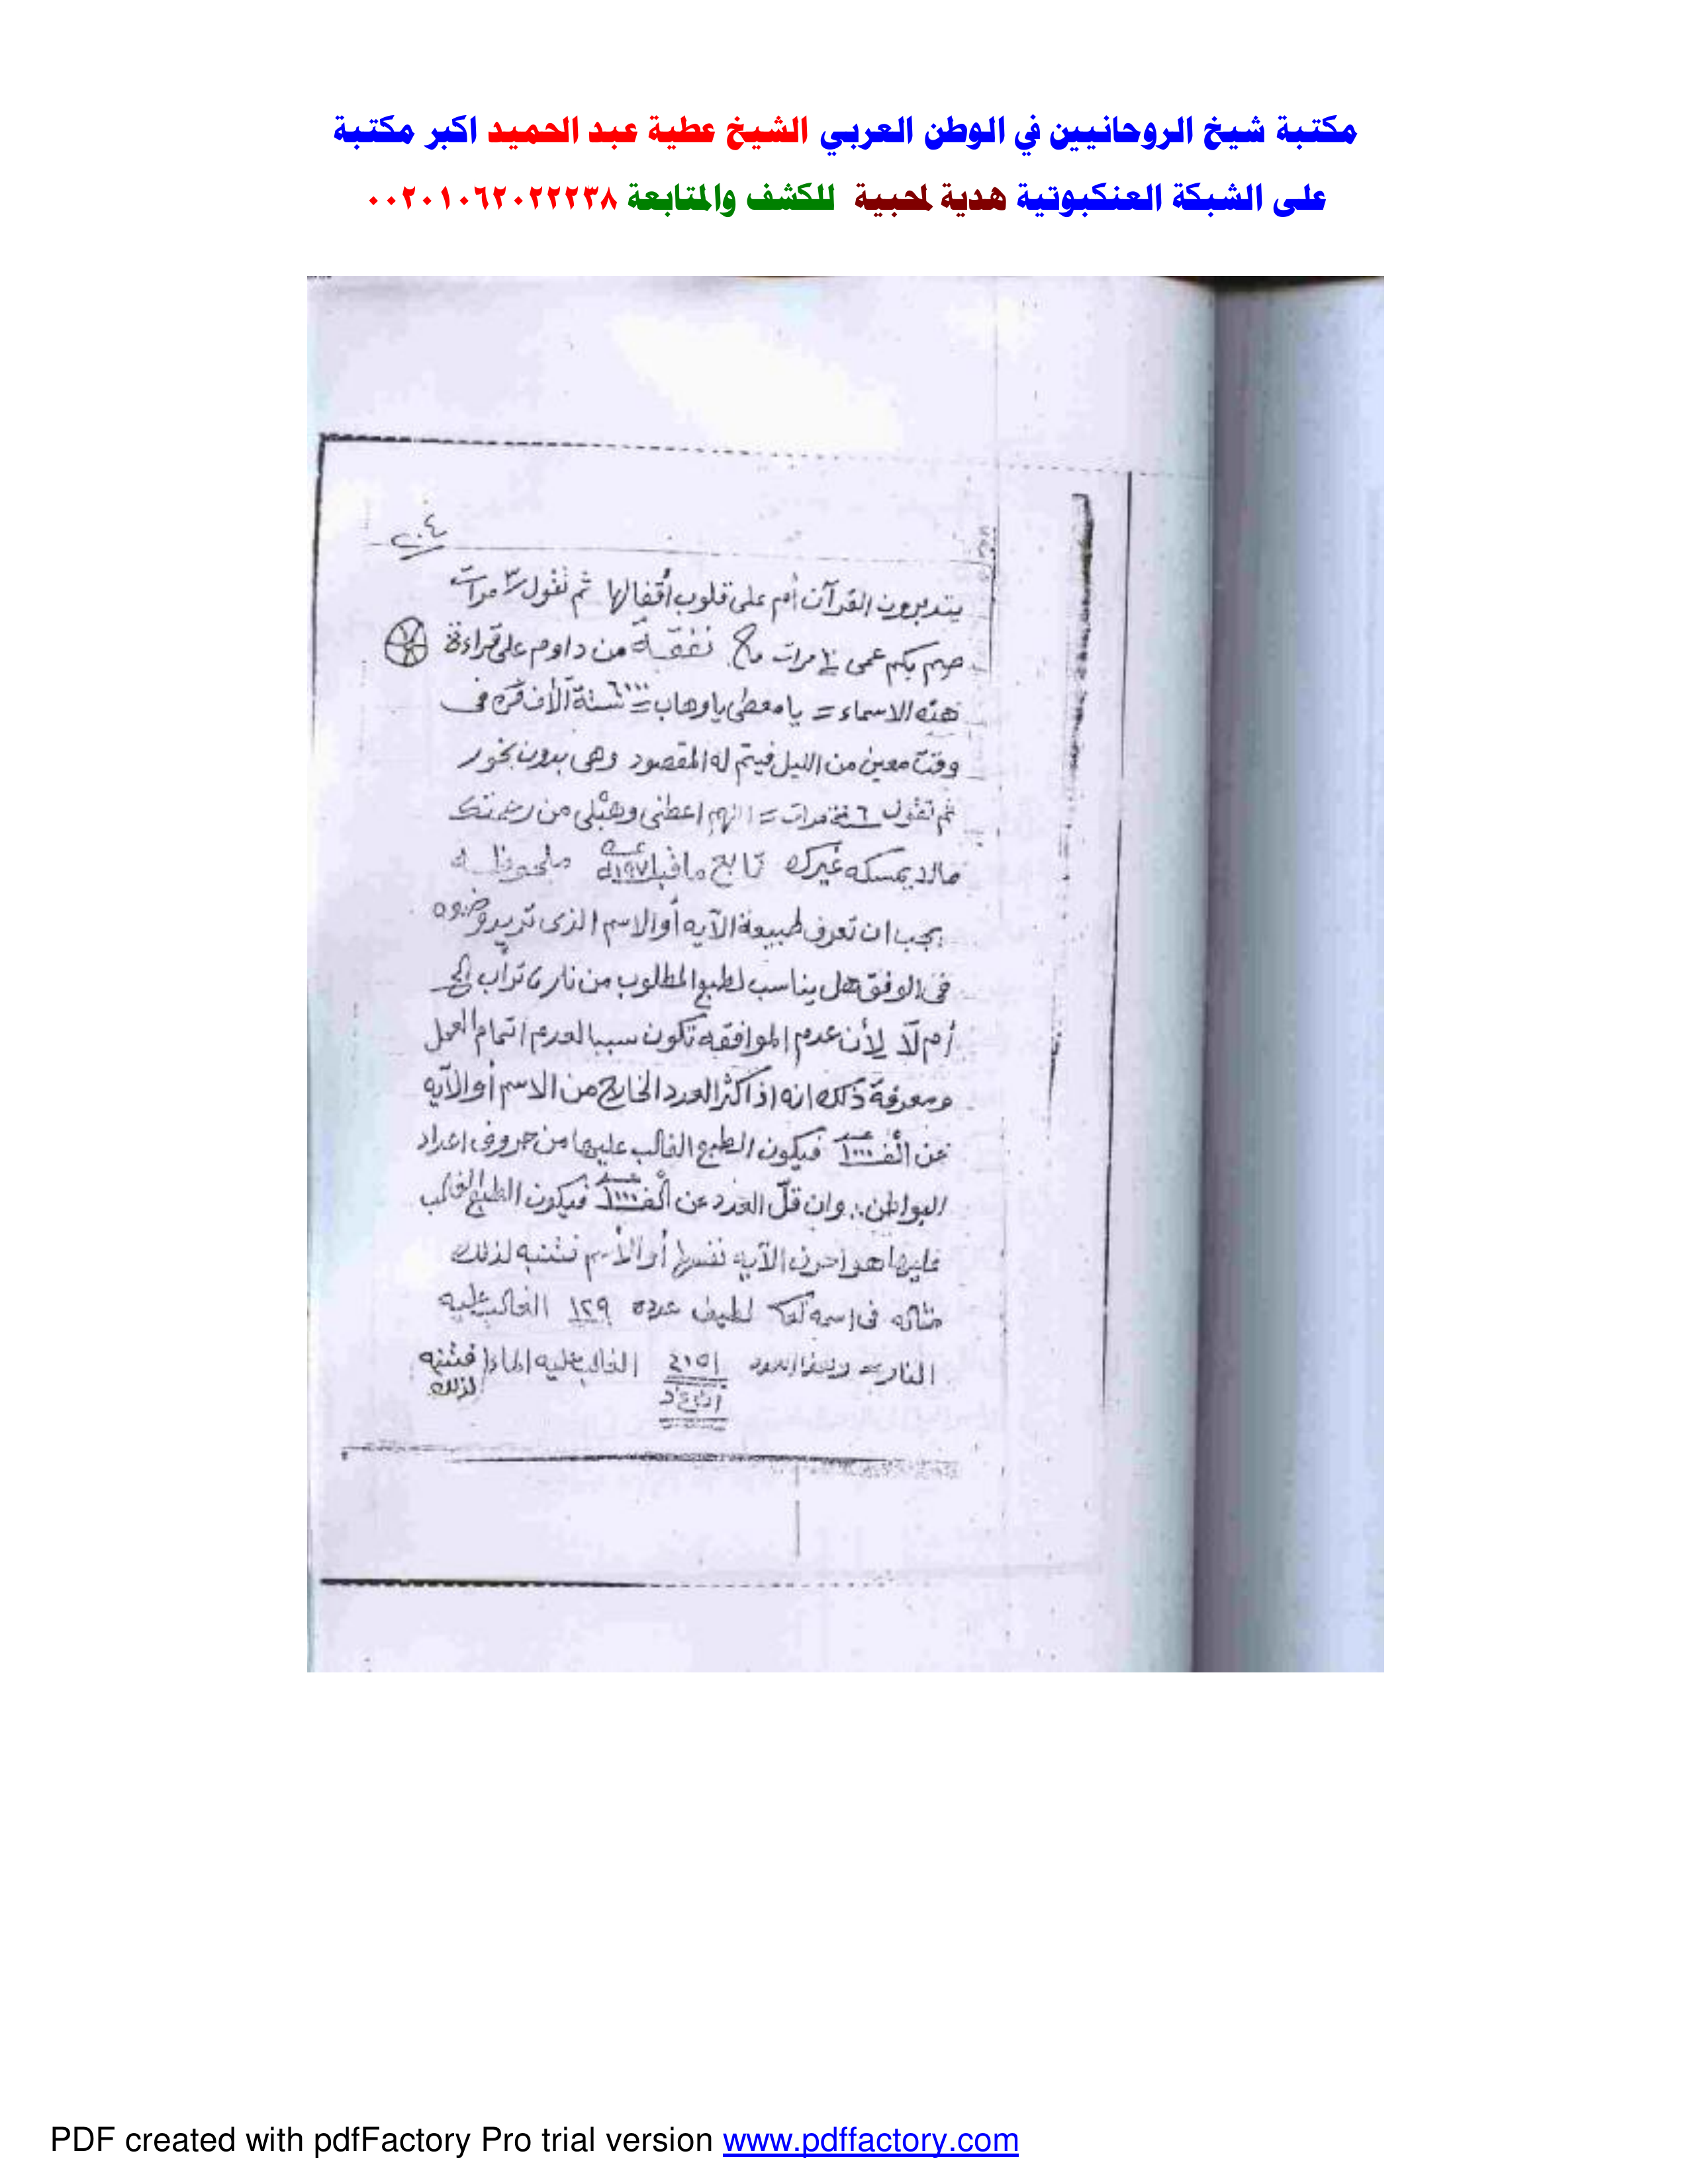 مكتبة شيخ الروحانيين في الوطن العربي الشيخ عطية عبد الحميد اكبر مكتبة
على الشبكة العنكبوتية هدية لمحبية للكشف والمتابعة ٠٠٢٠١٠٦٢٠٢٢٢٣٨
٢٠٤
يتدبرون القرآن أم على قلوب أقفالها ثم تقول ٣ مرات
صم بكم عمى مرات من داوم على قراءة
هذه الاسماء = يا معطى يا وهاب = ٦٠٠٠ ستة آلاف مرة فى
وقت معين من الليل فيتم له المقصود وهى بدون بخور
ثم تقول ٦ ستة مرات = اللهم اعطنى وهبلى من رحمتك
مالا يمسكه غيرك تابع ما قبل ١٩٧ ملحوظه
يجب ان تعرف طبيعة الآيه أو الاسم الذى تريد وضعه
فى الوفق هل يناسب لطبع المطلوب من نار ، تراب الخ
أم لا لأن عدم الموافقه تكون سببا لعدم اتمام العمل
ومعرفة ذلك انه اذا كثر العدد الخارج من الاسم أو الآيه
عن ألف ١٠٠٠ فيكون الطبع الغالب عليها من حروف اعداد
البواطن . وان قلّ العدد عن ألف ١٠٠٠ فيكون الطبع الغالب
عليها هو احرف الآيه نفسها أو الأسم فتنبه لذلك
مثاله فى اسمه لطيف عدده ١٢٩ الغالب عليه
النار العدد الغالب عليه الماء فتنبه
لذلك
PDF created with pdfFactory Pro trial version www.pdffactory.com